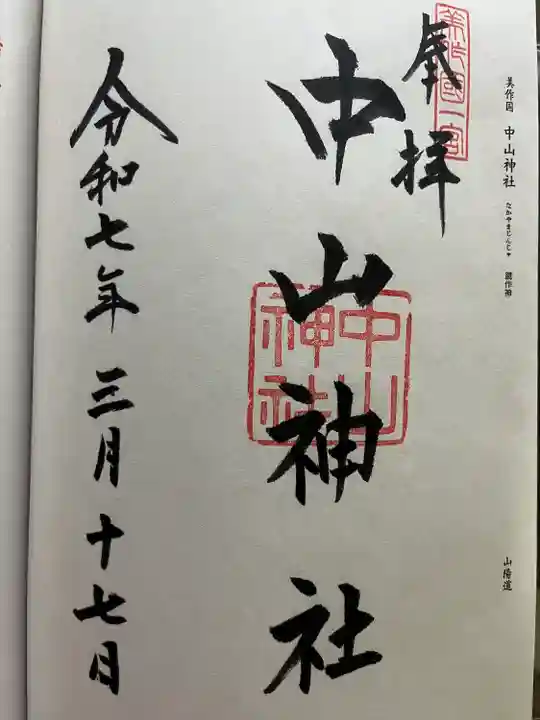 美作国 中山神社 なかやまじんじゃ 鏡作神
山陽道
美作國一宮
奉拝
中山神社
中山神社
令和七年 三月 十七日